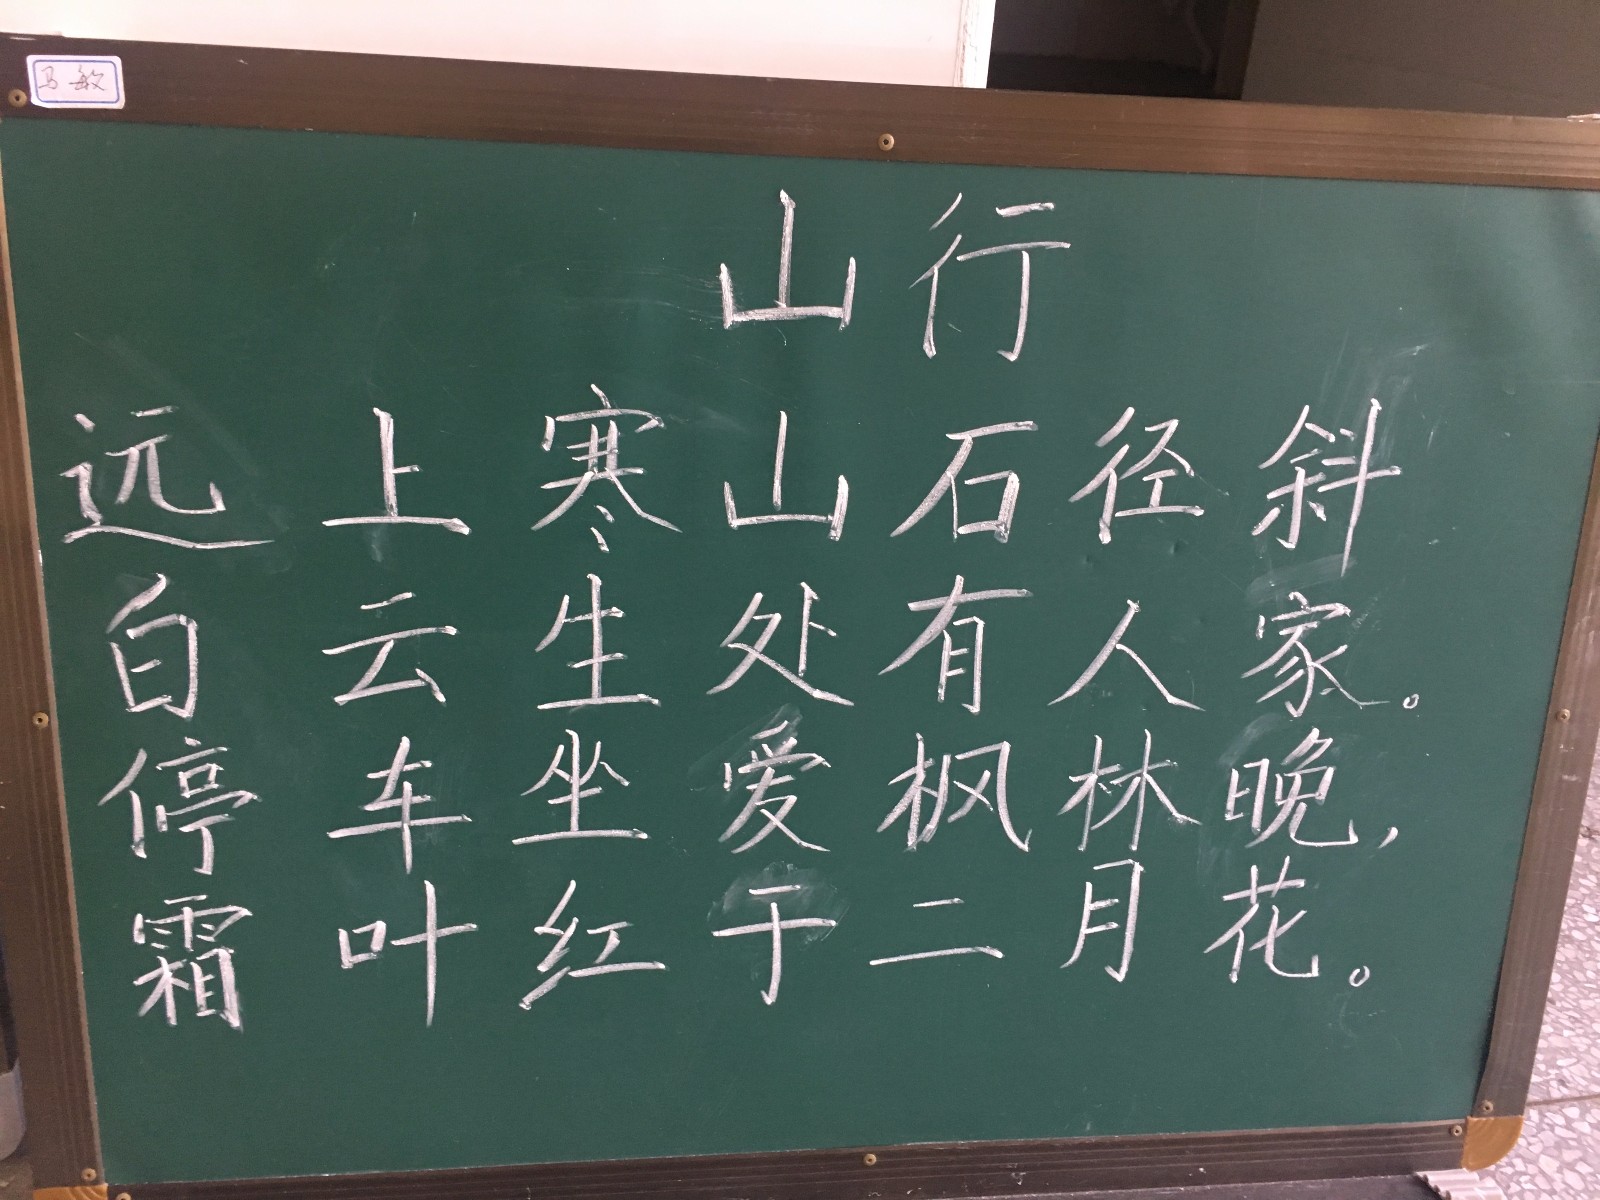 马敏
山行
远上寒山石径斜
白云生处有人家。
停车坐爱枫林晚，
霜叶红于二月花。